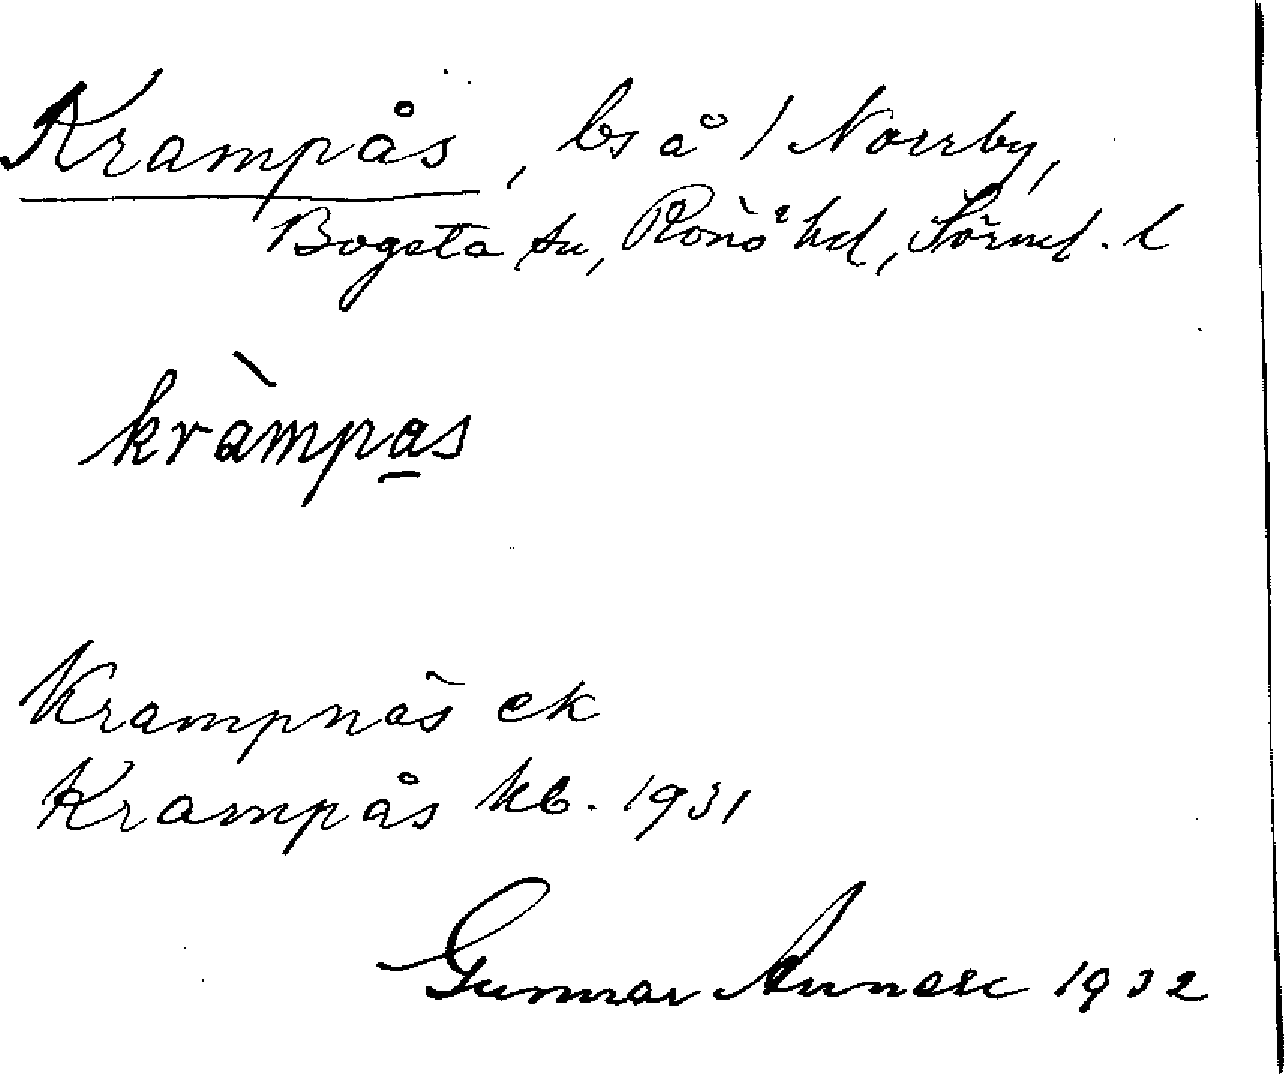 Krampås, bs å 1 Norrby,
Bogsta sn, Rönö hd, Sörml. l
kràmpas
Krampnäs ek
Krampås kb. 1931
Gunnar 1932